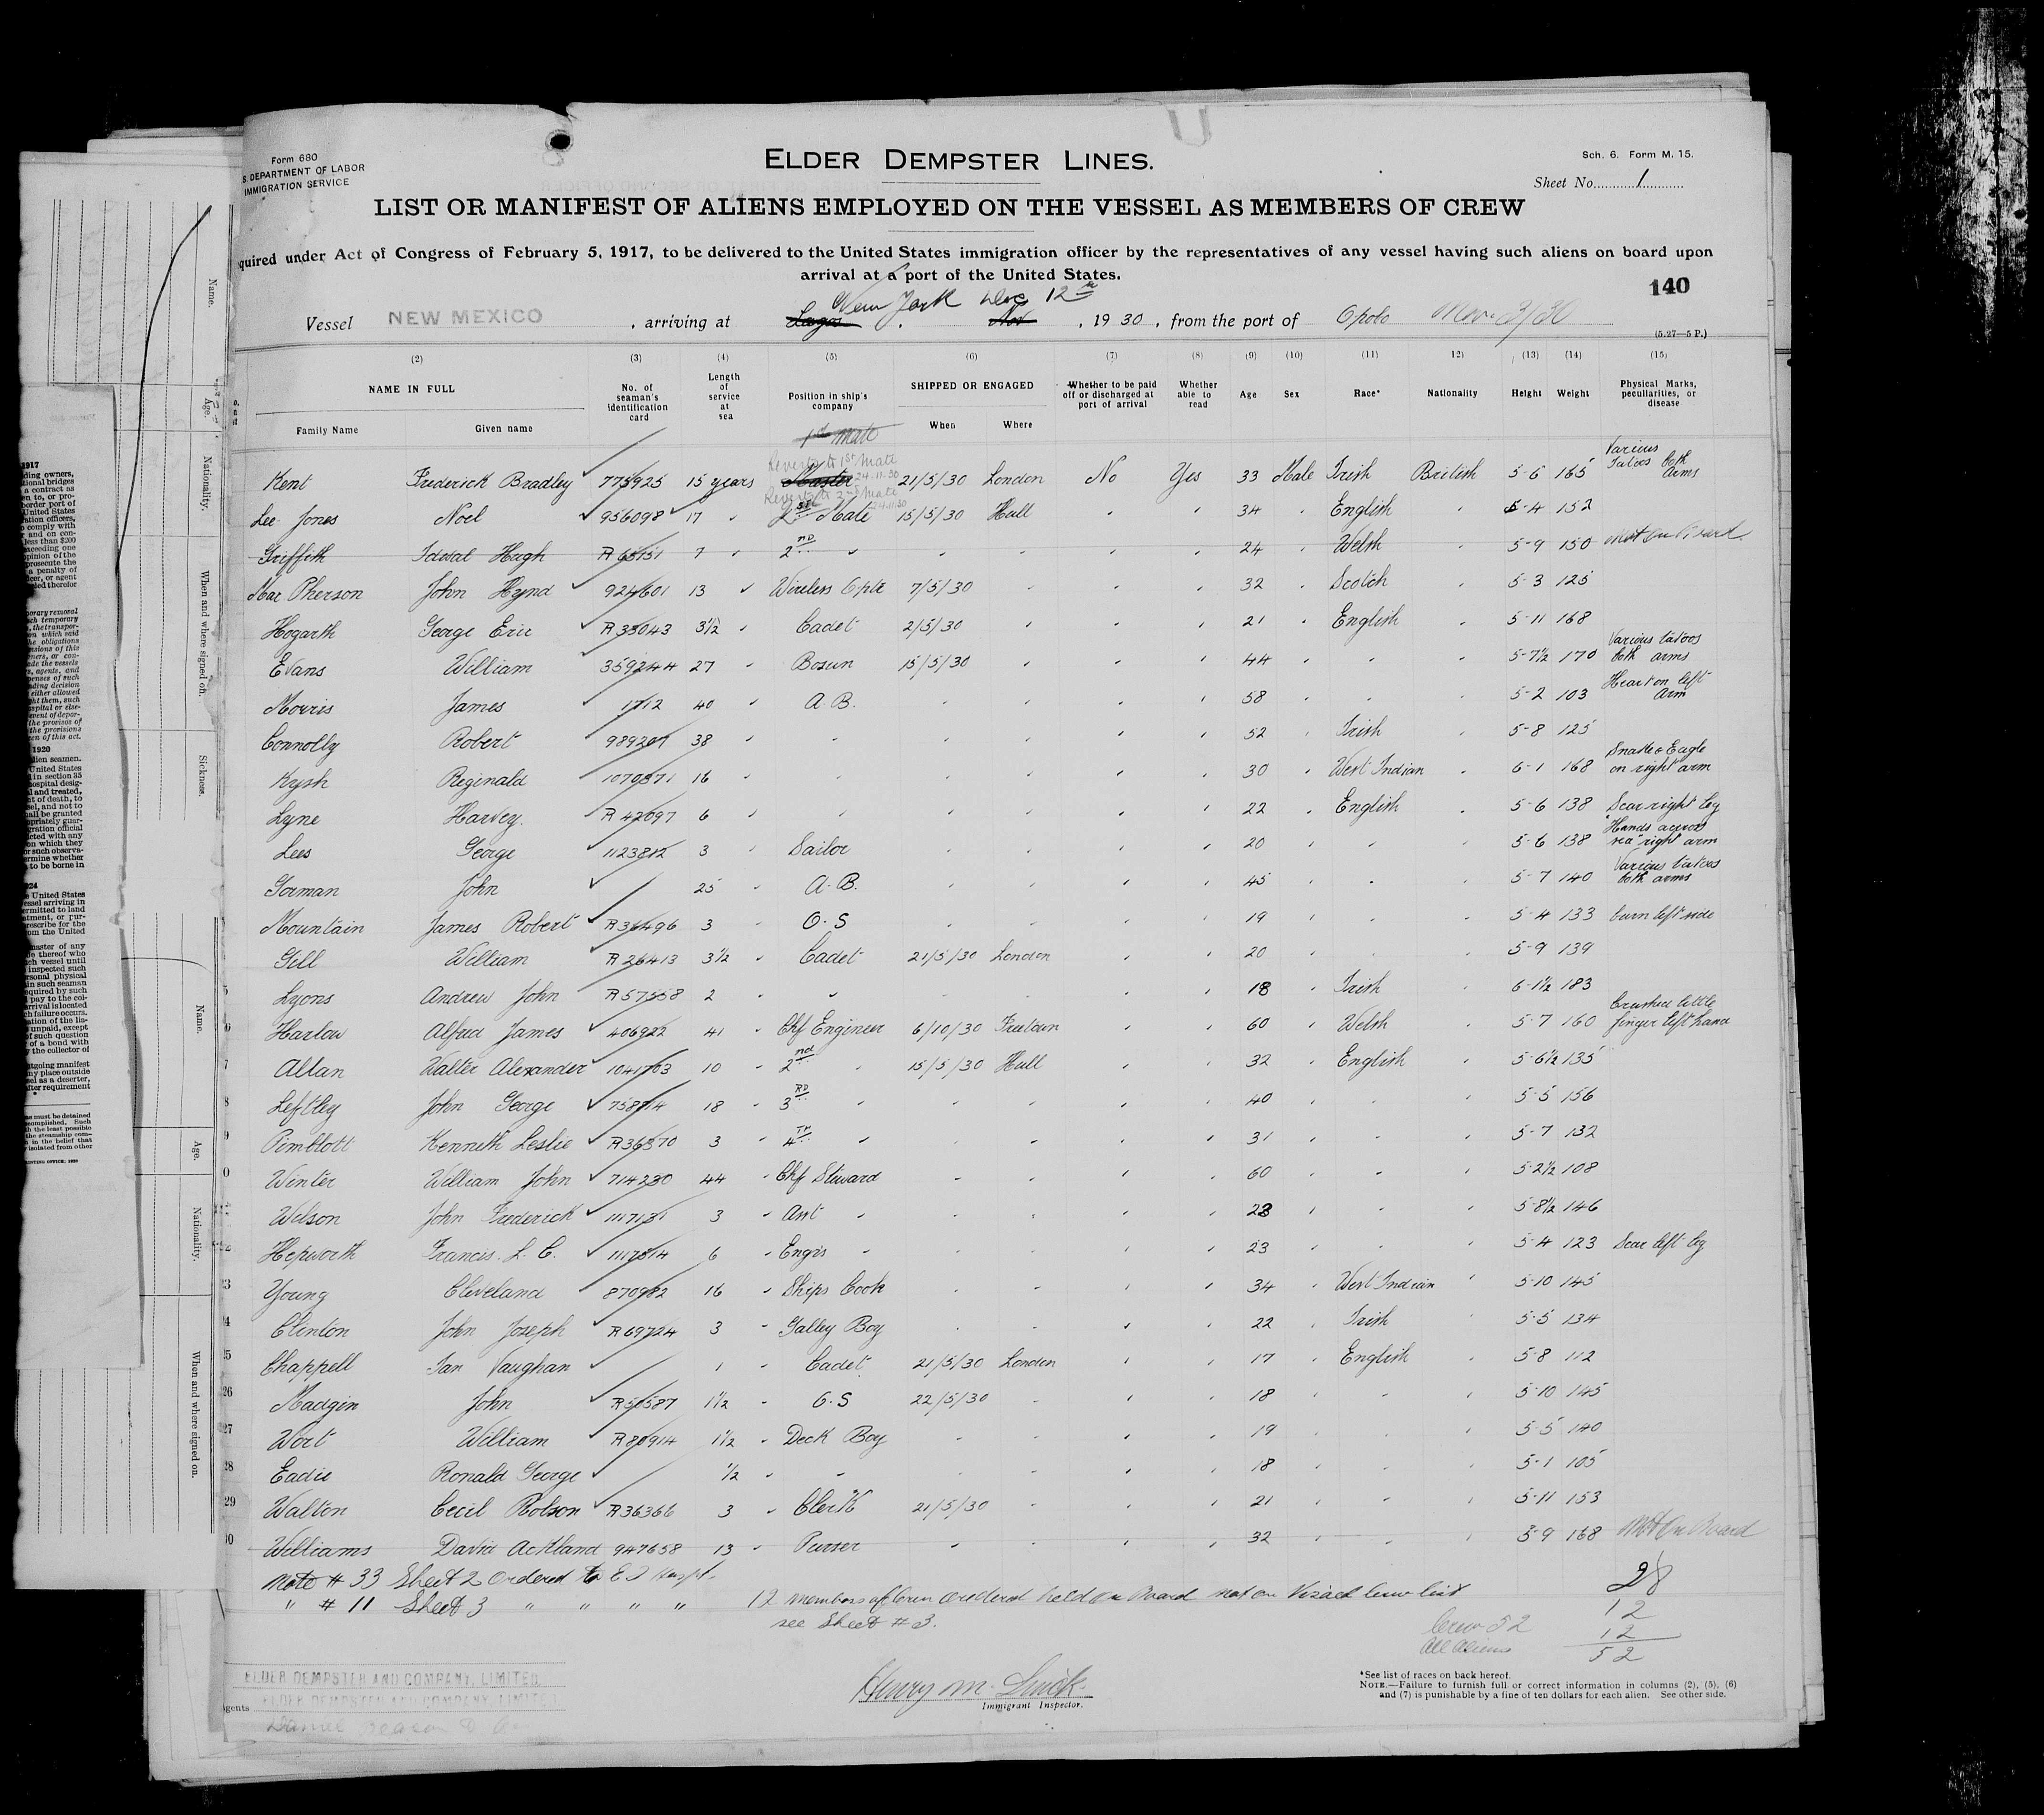 Form 680
S. DEPARTMENT OF LABOR
IMMIGRATION SERVICE
ELDER DEMPSTER LINES.
Sch. 6. Form M. 15.
Sheet No. 1
LIST OR MANIFEST OF ALIENS EMPLOYED ON THE VESSEL AS MEMBERS OF CREW
quired under Act of Congress of February 5, 1917, to be delivered to the United States immigration officer by the representatives of any vessel having such aliens on board upon
arrival at a port of the United States.
140
New York Dec 12th
Vessel NEW MEXICO, arriving at Lagos Nov, 1930, from the port of Opobo Nov. 3/30
(5.27—5 P.)
(2) (3) (4) (5) (6) (7) (8) (9) (10) (11) 12) (13) (14) (15)
NAME IN FULL No. of seaman's identification card Length of service at sea Position in ship's company SHIPPED OR ENGAGED Whether to be paid off or discharged at port of arrival Whether able to read Age Sex Race* Nationality Height Weight Physical Marks, peculiarities, or disease
Family Name Given name When Where
1st Mate
Reverts to 1st Mate 24.11.30
Kent Frederick Bradley 775925 15 years Master 21/5/30 London No Yes 33 Male Irish British 5-6 165 Various Tatoos both Arms
Reverts to 2nd Mate 24.11.30
Lee Jones Noel 956098 17 " Mate 15/5/30 Hull " " 34 " English " 5-4 152
Griffith Idwal Hugh R 65151 7 " 2ND " " " " " 24 " Welsh " 5-9 150 Not on Board
MacPherson John Hynd 924601 13 " Wireless Opte 7/5/30 " " " 32 " Scotch " 5-3 125
Hogarth George Eric R 33043 3½ " Cadet 2/5/30 " " " 21 " English " 5-11 168
Evans William 359244 27 " Bosun 15/5/30 " " " 44 " " " 5-7½ 170 Various tatoos both arms
Morris James 1712 40 " A.B. " " " " 58 " " " 5-2 103 Heart on left arm
Connolly Robert 989207 38 " " " " " " 52 " Irish " 5-8 125
Kysh Reginald 1070571 16 " " " " " " 30 " West Indian " 6-1 168 Snake & Eagle on right arm
Lyne Harvey. R 42097 6 " " " " " " 22 " English " 5-6 138 Scar right leg
Lees George 1123812 3 " Sailor " " " " 20 " " " 5-6 138 "Hands across sea" right arm
Gorman John 25 " A.B. " " " " 45 " " " 5-7 140 Various tatoos both arms
Mountain James Robert R 36496 3 " O.S " " " " 19 " " " 5-4 133 burn left side
Gill William R 26413 3½ " Cadet 21/5/30 London " " 20 " " " 5-9 139
Lyons Andrew John R 57558 2 " " " " " " 18 " Irish " 6-1½ 183
Harlow Alfred James 406922 41 " Chf Engineer 6/10/30 Freetown " " 60 " Welsh " 5-7 160 Crushed little finger left hand
Allan Walter Alexander 1041703 10 " 2nd " 15/5/30 Hull " " 32 " English " 5-6½ 135
Leftley John George 758714 18 " 3RD " " " " " 40 " " " 5-5 156
Pimblott Kenneth Leslie R36570 3 " 4TH " " " " " 31 " " " 5-7 132
Winter William John 714230 44 " Chf Steward " " " " 60 " " " 5-2½ 108
Wilson John Frederick 1117131 3 " Asst " " " " " 28 " " " 5-8½ 146
Hepworth Francis L. C. 1117814 6 " Engrs " " " " " 23 " " " 5-4 123 Scar left leg
Young Cleveland 870982 16 " Ships Cook " " " " 34 " West Indian " 5-10 145
Clinton John Joseph R 69724 3 " Galley Boy " " " " 22 " Irish " 5-5 134
Chappell Ian Vaughan 1 " Cadet 21/5/30 London " " 17 " English " 5-8 112
Madgin John R 51587 1½ " O.S 22/5/30 " " " 18 " " " 5-10 145
Wort William R 80914 1½ " Deck Boy " " " " 19 " " " 5-5 140
Eadie Ronald George ½ " " " " " " 18 " " " 5-1 105
Walton Cecil Robson R36366 3 " Clerk 21/5/30 " " " 21 " " " 5-11 153
Williams David Ackland 947658 13 " Purser " " " " 32 " " " 5-9 168 Not on Board
Note # 33 Sheet 2 Ordered to E I Hospt.
" # 11 Sheet 3 " " " "
12 members of Crew ordered held on Board not on Visaed Crew list
see Sheet # 3.
28
12
12
52
Crew 52
All Aliens
ELDER DEMPSTER AND COMPANY, LIMITED
ELDER DEMPSTER AND COMPANY, LIMITED
gents
Immigrant Inspector.
*See list of races on back hereof.
NOTE.—Failure to furnish full or correct information in columns (2), (5), (6)
and (7) is punishable by a fine of ten dollars for each alien. See other side.
Name.
Age.
Nationality.
When and where signed on.
Sickness.
Name.
Age.
Nationality.
When and where signed on.